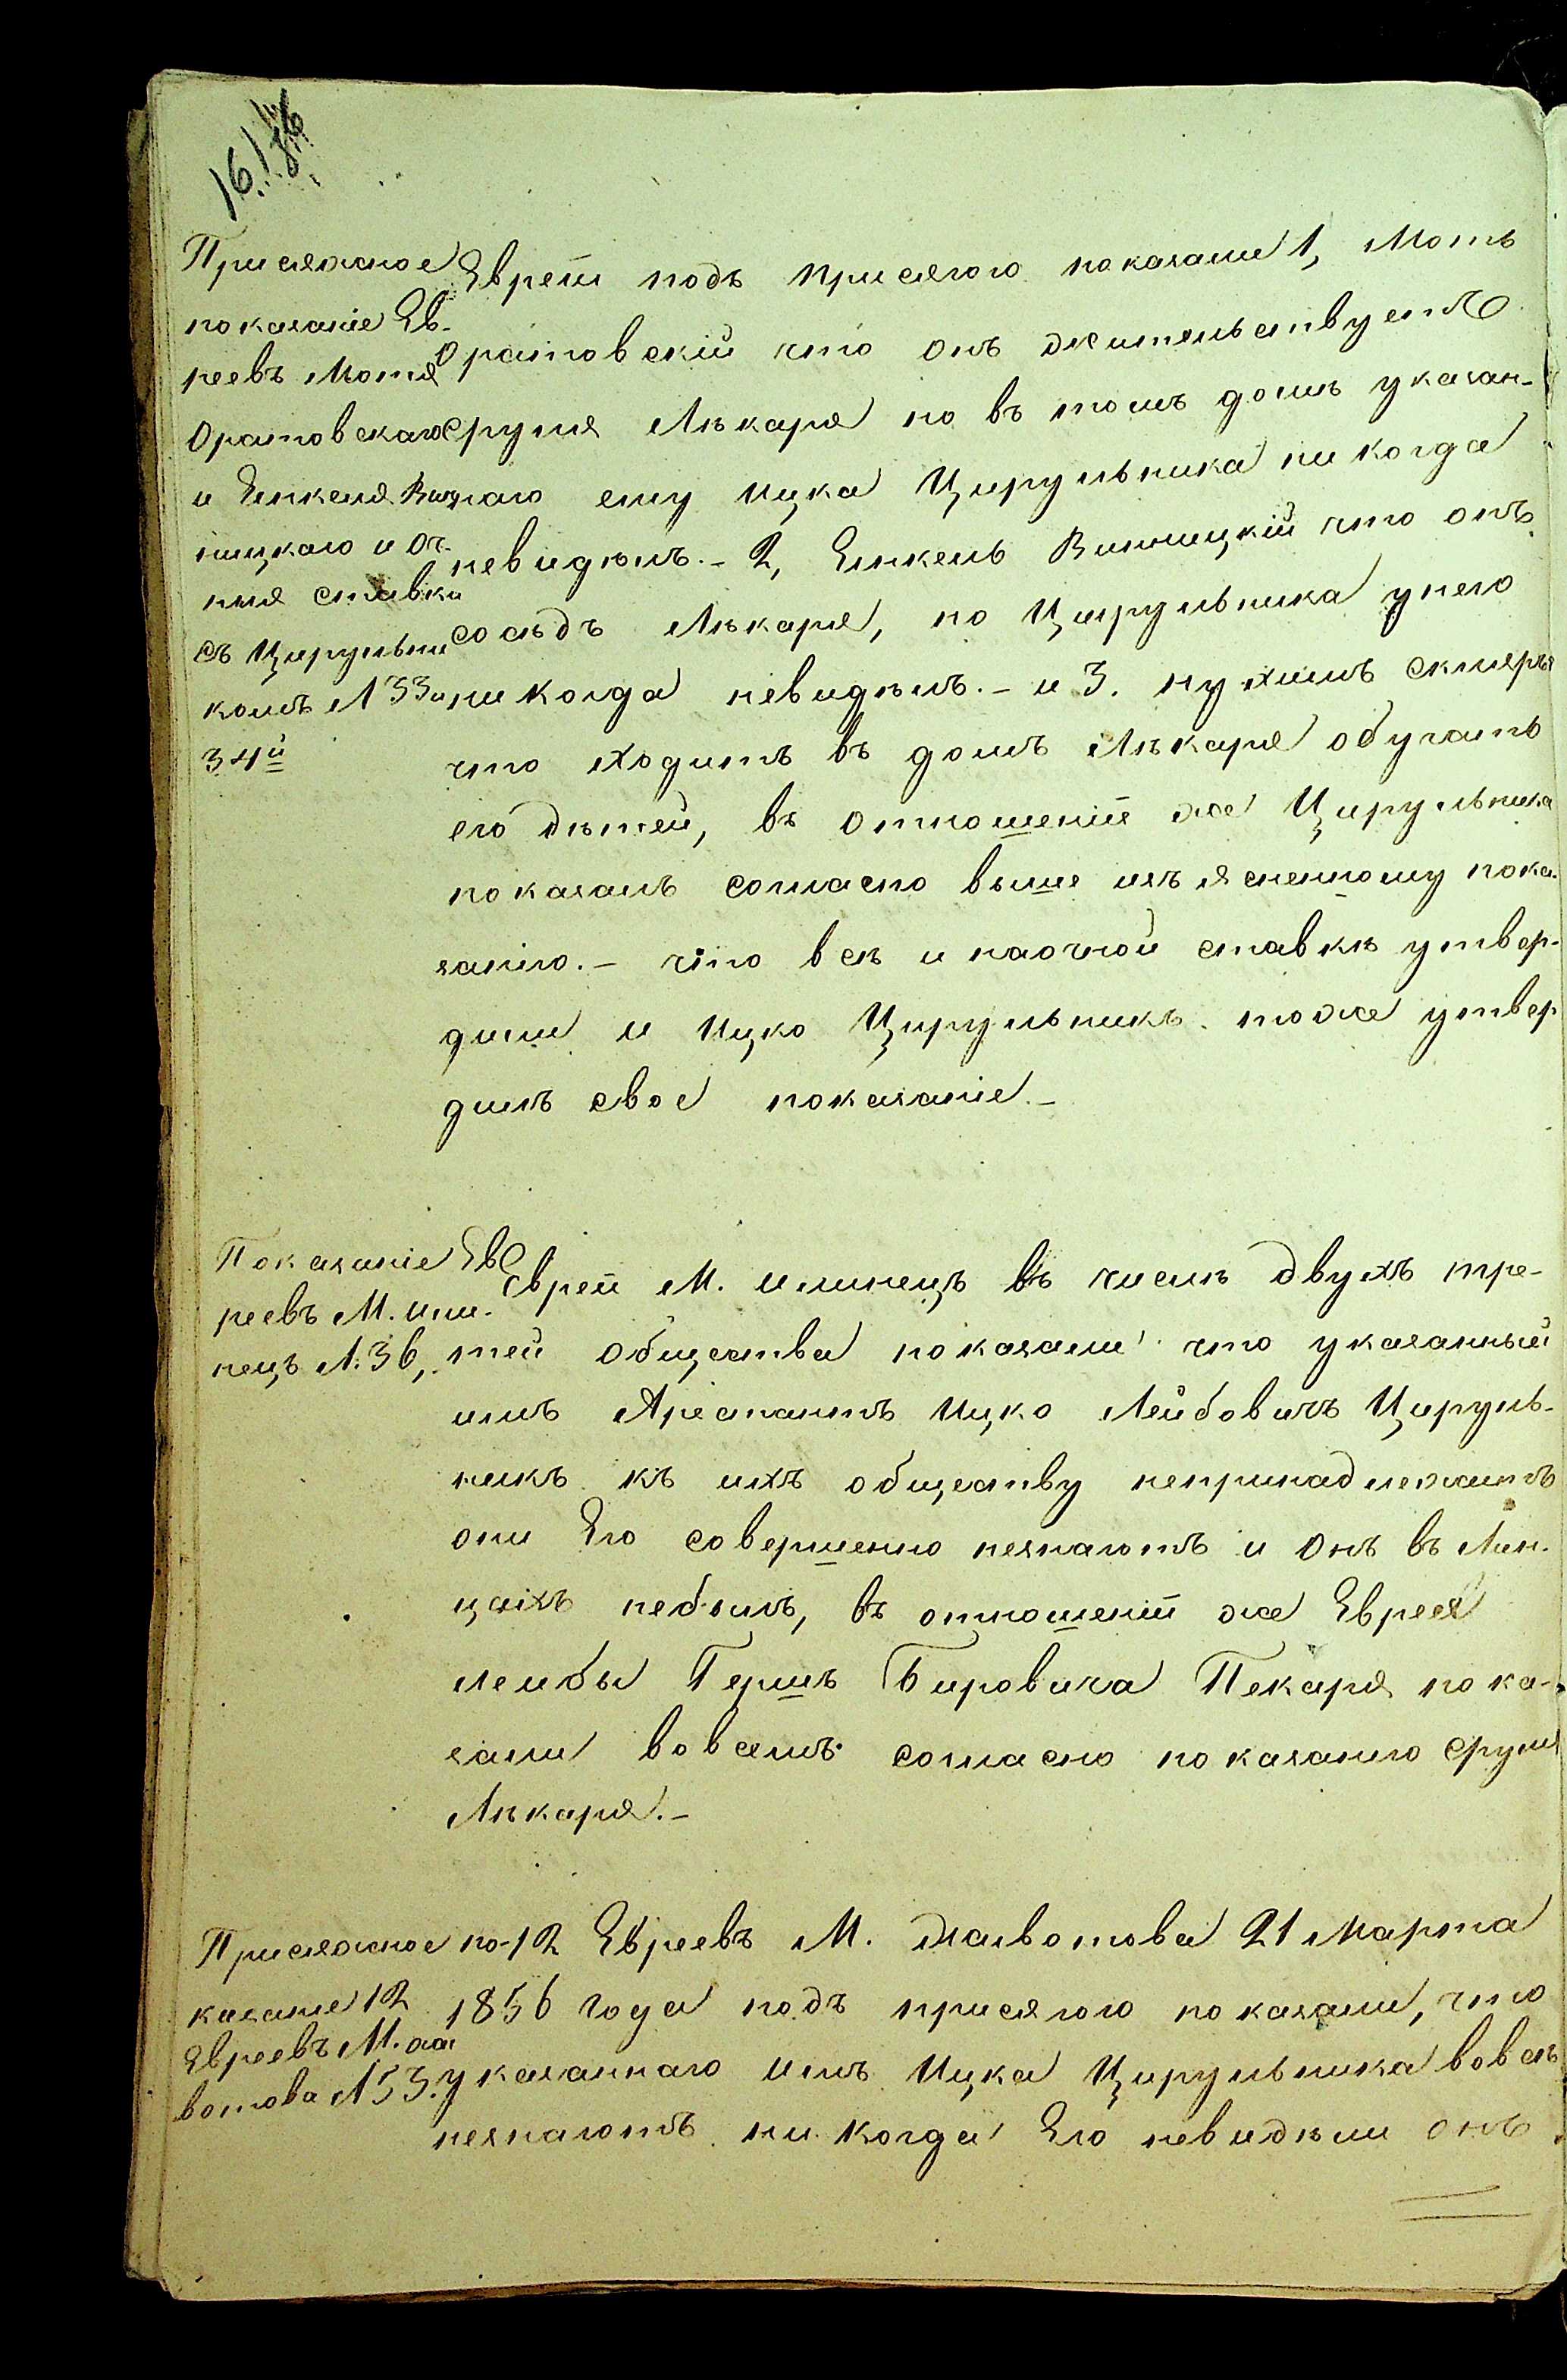 Присяжное
показаніе Ев-
реевъ Мотя
Оратовскаго
и Янкеля Вин-
ницкаго и Оч-
ныя ставки
съ Цирульни
комъ Л 33 и
34й
Евреи подъ присягою показали 1, Моть
Оратовскій что онъ жительствуетъ
Сруля Лѣкаря но въ томъ домѣ указан-
наго ему Ицка Цирульника ни когда
невидѣлъ. - 2, Янкель Винницкій что онъ
сосѣдъ Лѣкаря, но Цирульника у него
ни когда невидѣлъ. - и 3. Нухимъ Скляръ
что ходитъ въ домъ Лѣкаря обучать
его дѣтей, въ отношеніи же Цирульника
показалъ согласно выше изъясненному пока-
занію. - что всѣ и наочной ставкѣ утвер-
дили и Ицко Цирульникъ тоже утвер
дилъ свое показаніе. -
Показаніе Ев
реевъ М. Или-
нецъ Л. 36,
Евреи М. Илинецъ въ числѣ двухъ тре-
тей общества показали что указанный
имъ Арестантъ Ицко Лейбовичъ Цируль-
никъ къ ихъ обществу непринадлежитъ
они Его совершенно незнаютъ и Онъ въ Лин-
цахъ небылъ, въ отношеніи же Еврея
Лейбы Гершъ Бировича Пекаря пока-
зали вовсемъ согласно показанію Сруля
Лѣкаря. -
Присяжное по-
казаніе 12
Евреевъ М. Жи
вотова Л 53.
12 Евреевъ М. Животова 21 Марта
1856 года подъ присягою показали, что
указаннаго имъ Ицка Цирульника вовсе
незнаютъ ни когда Его невидѣли онъ